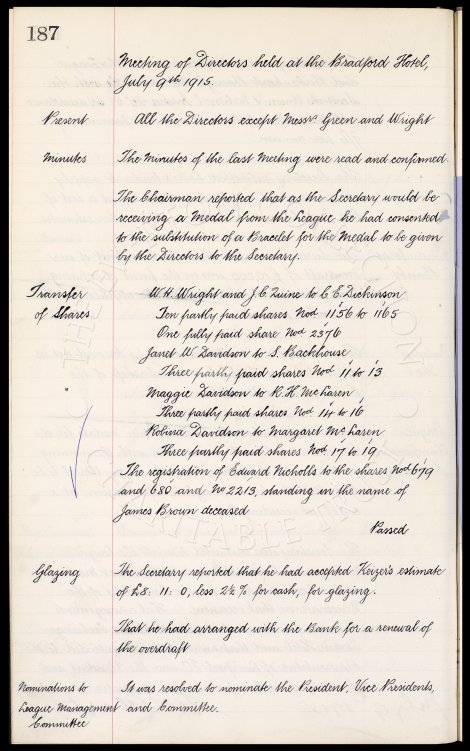 187
Meeting of Directors held at the Bradford Hotel,
July 9th 1915.
Present All the Directors except Messrs. Green and Wright
Minutes The Minutes of the last Meeting were read and confirmed
The Chairman reported that as the Secretary would be
receiving a Medal from the League he had consented
to the substitution of a Bracelet for the Medal to be given
by the Directors to the Secretary.
Transfer W. H. Wright and J. C. Quine to C. E. Dickinson
of Shares Ten partly paid shares Nod 1156 to 1165
One fully paid share Nod 2376
Janet W. Davidson to S. Backhouse
Three partly paid shares Nod 11 to 13
" Maggie Davidson to R. H. McLaren
Three partly paid shares Nod 14 to 16
Robina Davidson to Margaret McLaren
Three partly paid shares Nod 17 to 19
The registration of Edward Nicholls to the shares Nod 679
and 680 and No 2213, standing in the name of
James Brown deceased
Passed
Glazing The Secretary reported that he had accepted Keizer's estimate
of £8: 11: 0, less 2½ % for cash, for glazing.
That he had arranged with the Bank for a renewal of
the overdraft
Nominations to It was resolved to nominate the President, Vice Presidents,
League Management and Committee.
Committee